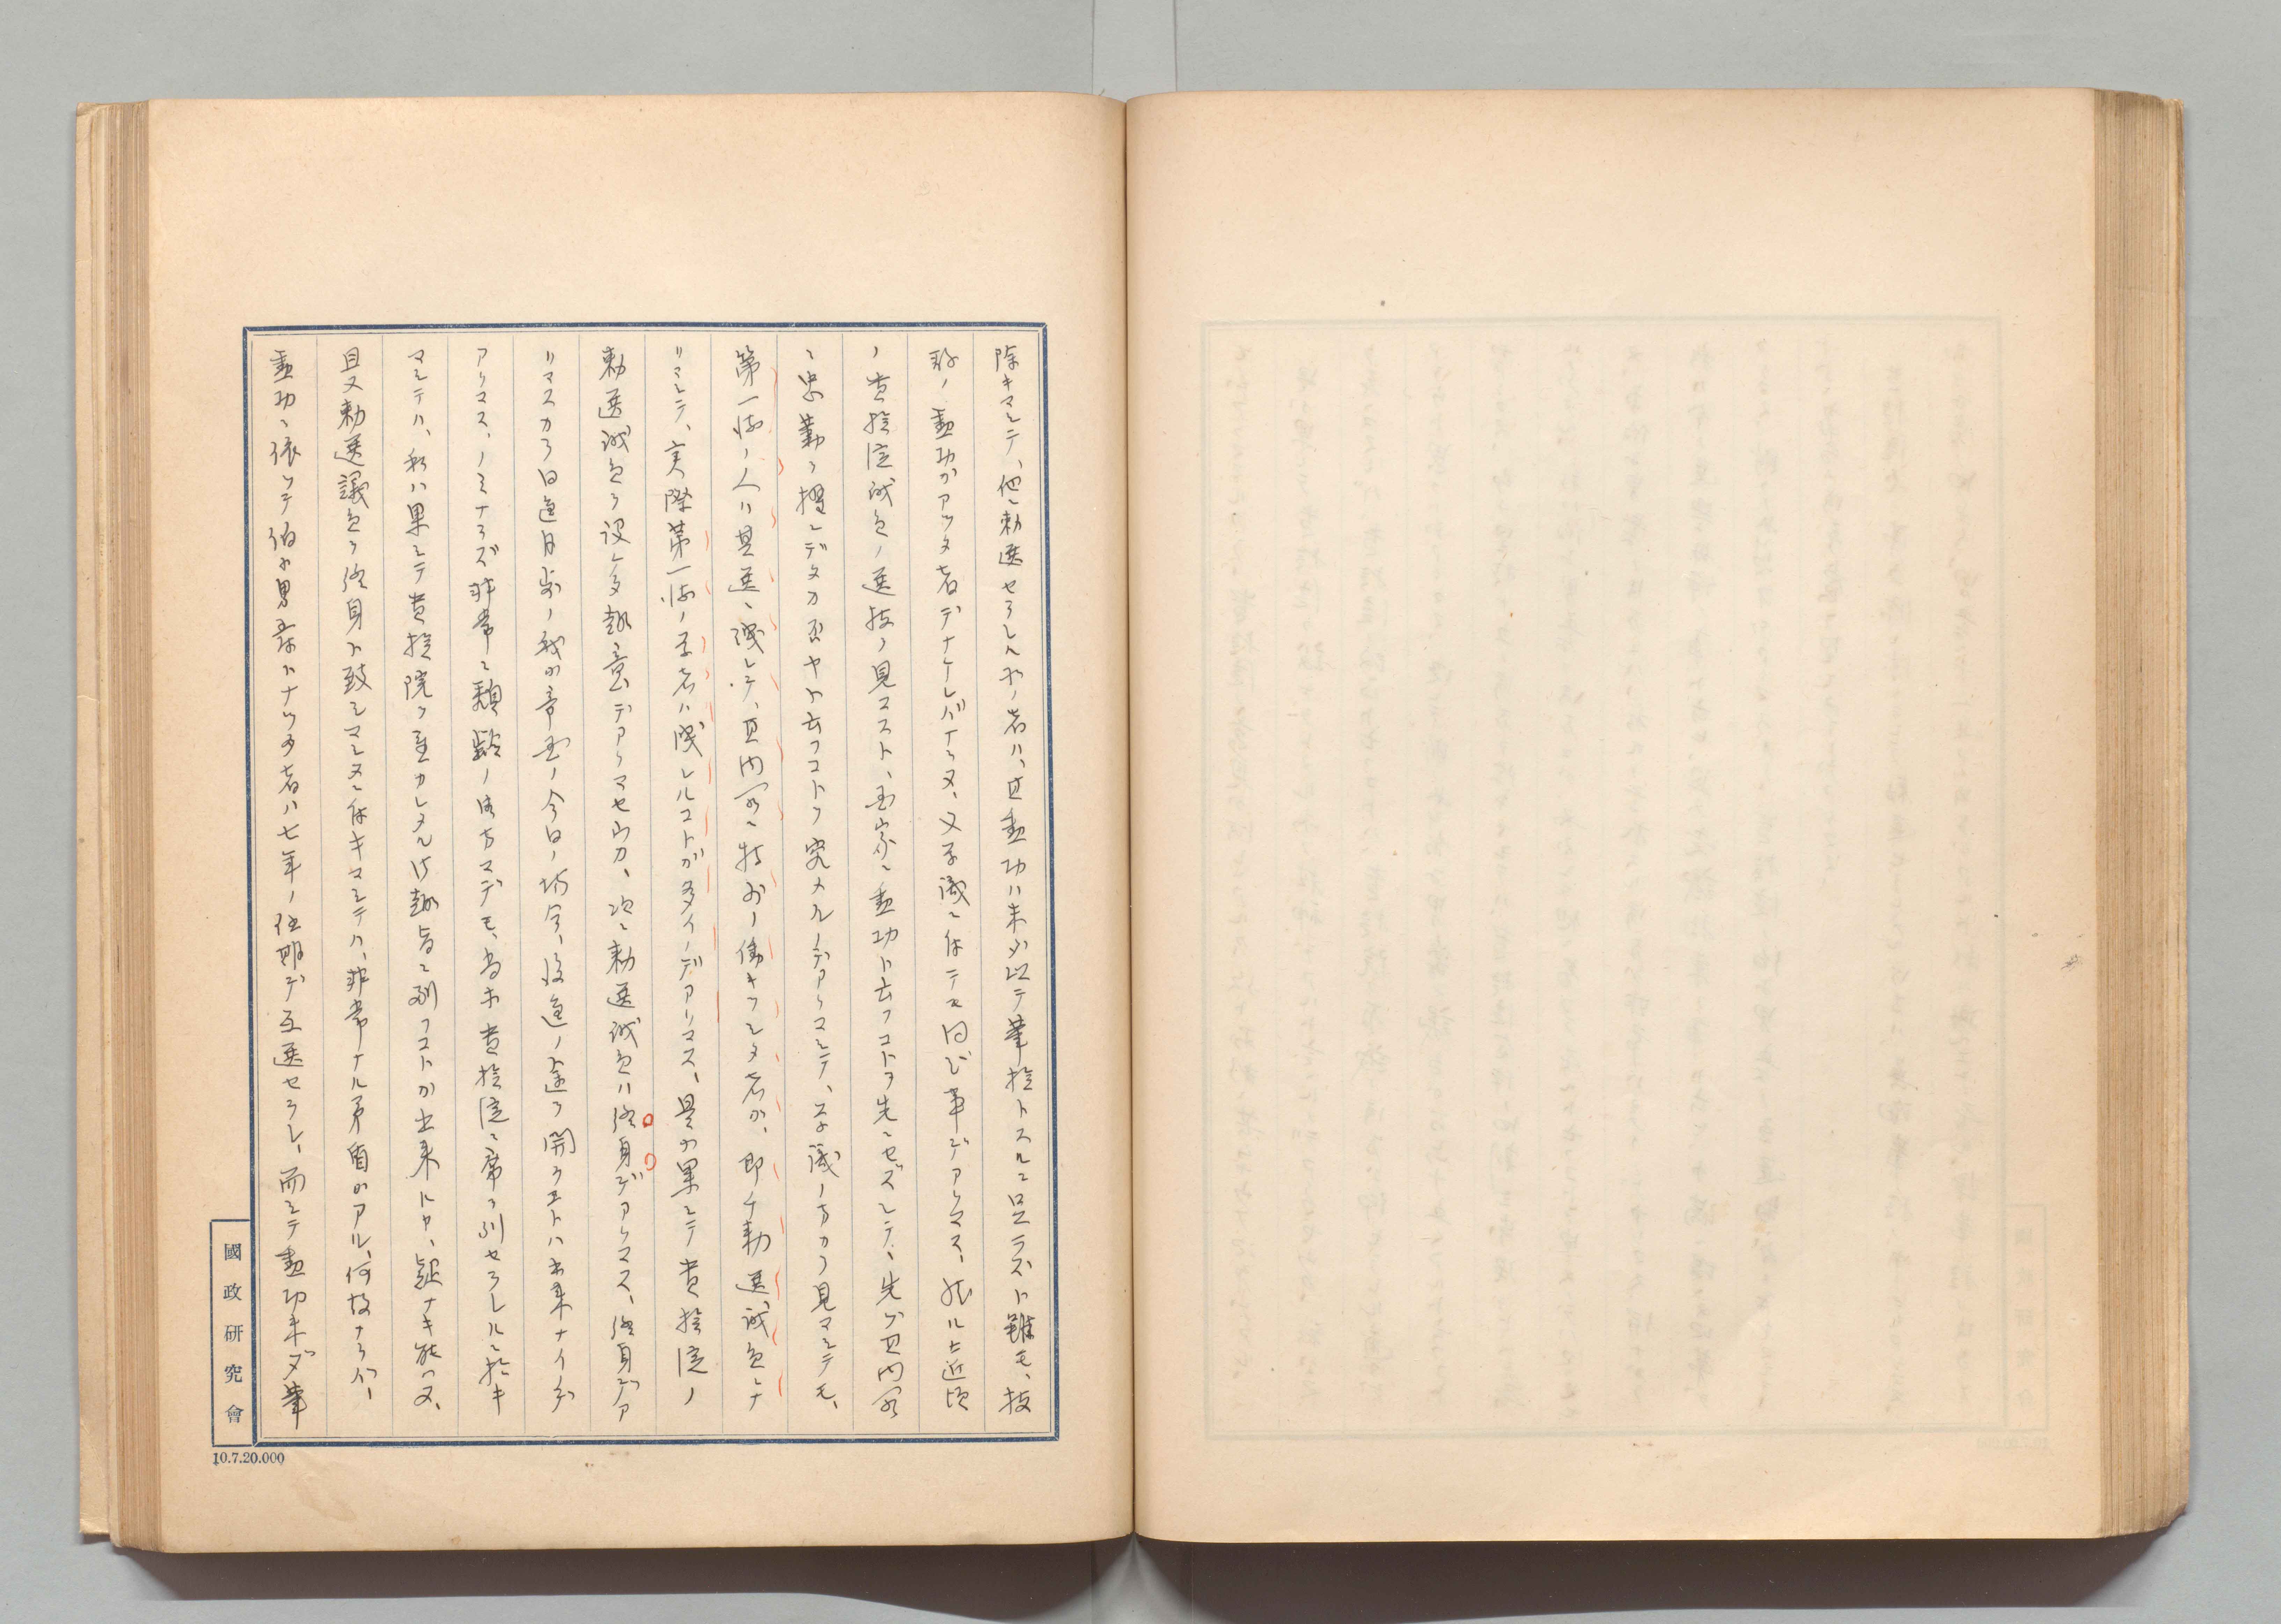 除キマシテ、他ニ勅選セラレル所ノ者ハ、其勲功ハ未ダ以テ華族トスルニ足ラズト雖モ、抜
群ノ勲功ガアツタ者デナケレバナラヌ、又学識ニ於テモ同ジ事デアリマス、然ルニ近頃
ノ貴族院議員ノ選抜ヲ見マスト、国家ニ勲功ト云フコトヲ先ニセズシテ、先ヅ其内閣
ニ忠勤ヲ擢ンデタカ否ヤト云フコトヲ究メルノデアリマシテ、学識ノ方カラ見マシテモ、
第一流ノ人ハ其選ニ洩レテ、其内閣ニ特別ノ働キヲシタ者ガ、即チ勅選議員トナ
リマシテ、実際第一流ノ学者ハ洩レルコトガ多イノデアリマス、是ガ果シテ貴族院ノ
勅選議員ヲ設ケタ趣意デアリマセウカ、次ニ勅選議員ハ終身デアリマス、終身デア
リマスカラ日進月歩ノ我ガ帝国ノ今日ノ場合、後進ノ途ヲ開クコトハ出来ナイノデ
アリマス、ノミナラズ非常ニ頽齢ノ諸方マデモ、尚ホ貴族院ニ席ヲ列セラレルニ於キ
マシテハ、私ハ果シテ貴族院ヲ重カレタル御趣旨ニ副フコトガ出来ルカ、疑ナキ能ハヌ、
且又勅選議員ヲ終身ト致シマシタニ於キマシテハ、非常ナル矛盾ガアル、何故ナラバ、
勲功ニ依ツテ伯子男爵トナツタ者ハ七年ノ任期デ互選セラレ、而シテ勲功未ダ華
國政研究會
10.7.20.000